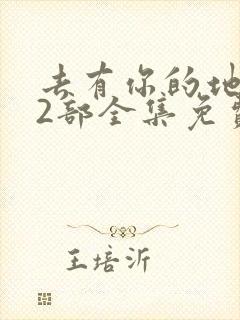 去有你的地
2部全集免费
王培沂